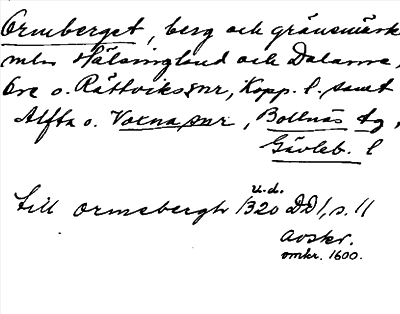 Ormberget, berg och gränsmärke
mln Hälsingland och Dalarne,
Ore o. Rättviks snr, Kopp. l. samt
Alfta o. Voxna snr, Bollnäs tg,
Gävleb. l
u.d.
till ormsbergh 1320 DD 1, s. 11
avskr.
omkr. 1600.